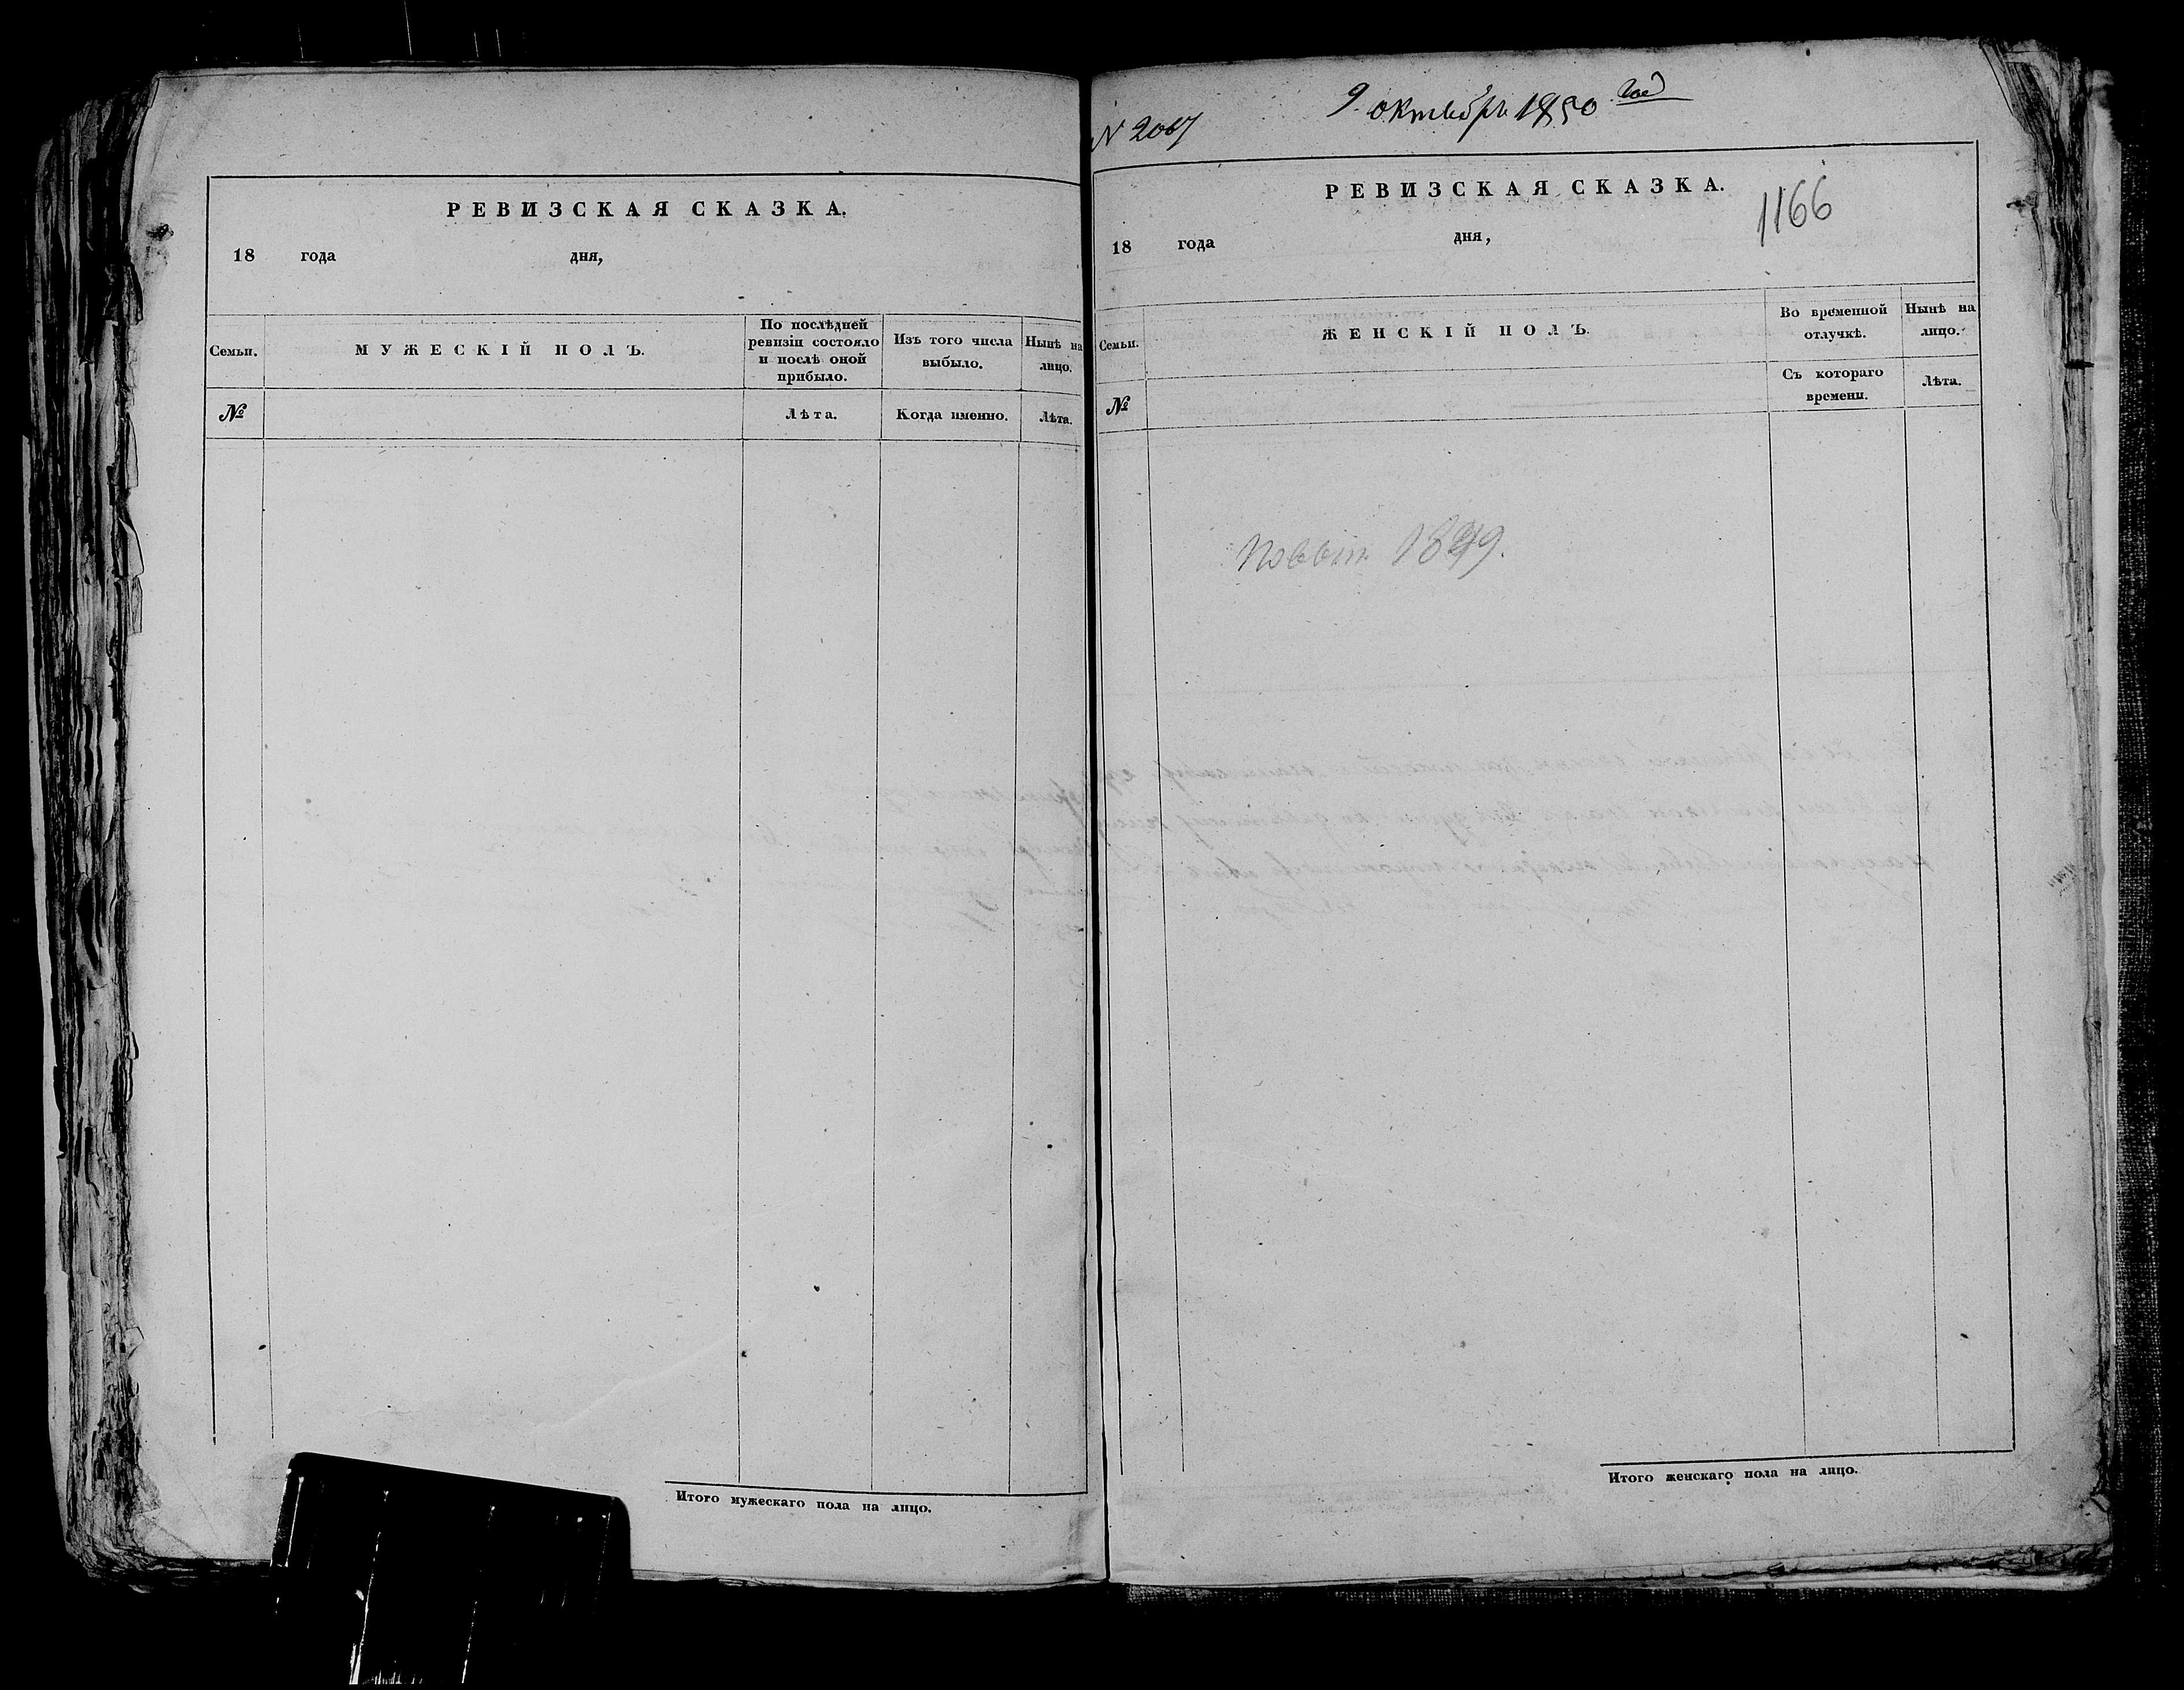 РЕВИЗСКАЯ СКАЗКА.
18 года дня,
Семьи.
МУЖЕСКІЙ ПОЛЪ.
По послѣдней
ревизіи состояло
и послѣ оной
прибыло.
Изъ того числа
выбыло.
Нынѣ на
лицо.
№
Лѣта.
Когда именно.
Лѣта.
Итого мужескаго пола на лицо.
9 октября 1850 год
РЕВИЗСКАЯ СКАЗКА.
1166
18 года дня,
Семьи.
ЖЕНСКІЙ ПОЛЪ.
Во временной
отлучкѣ.
Нынѣ на
лицо.
№
Съ котораго
времени.
Лѣта.
Итого женскаго пола на лицо.